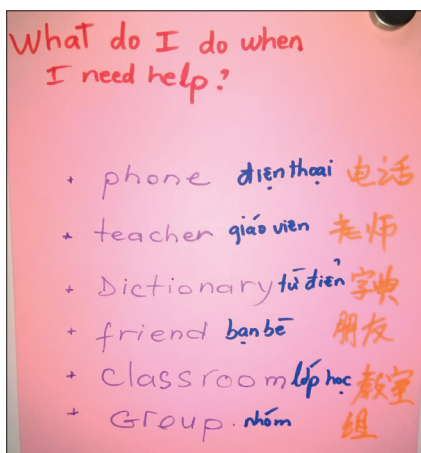 What do I do when
I need help?
+ phone điện thoại 电话
+ teacher giáo viên 老师
+ Dictionary từ điển 字典
+ friend bạn bè 朋友
+ Classroom lớp học 教室
+ Group. nhóm 组